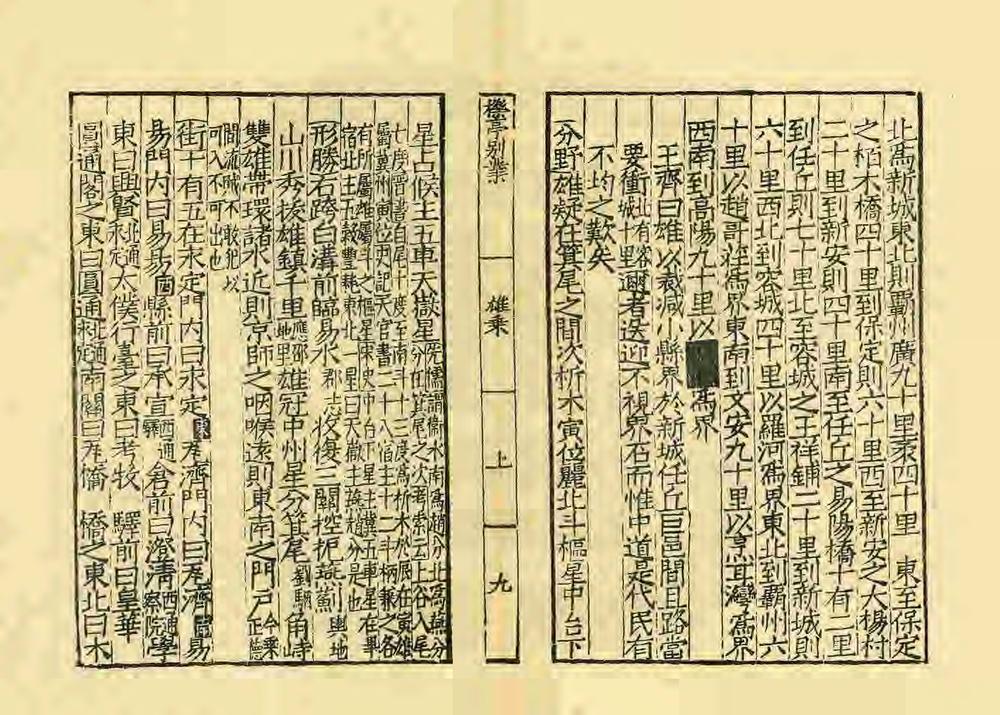 北爲新城東北則霸州廣九十里袤四十里　東至保定
之栢木橋四十里到保定則六十里西至新安之大楊村
二十里到新安則四十里南至任丘之易陽橋十有二里
到任丘則七十里北至容城之王祥鋪二十里到新城則
六十里西北到容城四十里以羅河爲界東北到霸州六
十里以趙哥莊爲界東南到文安九十里以烹耳灣爲界
西南到高陽九十里以　爲界
王齊曰雄以裁減小縣界於新城任丘巨邑間且路當
要衝城北有容十里邇者送迎不視界石而惟中道是代民有
不均之歎矣
分野雄疑在箕尾之間次析木寅位麗北斗樞星中台下
樷亭別業
雄乘
上
九
星占候主五車天嶽星分在箕尾之次
七度晉書自尾十度至南斗十三度爲析木於辰在寅
屬冀州寅位史記天官書二十八宿主十二斗柄兼之各
有所屬雄屬斗之樞星
宿北主五穀豐耗東北一星曰天嶽主燕趙分是也
形勝右跨白溝前臨易水郡志後復三關控扼燕薊輿地
山川秀拔雄鎮千里雄冠中州星分箕尾角峙
雙雄帶環諸水近則京師之咽喉遠則東南之門戶正德
間流賊不敢犯以
可入不可出也
街十有五在永定門内曰永定瓦濟門内曰瓦濟易
易門内曰易易縣前曰承宣西通驛倉前曰澄清西通察院學
東曰興賢太僕行臺之東曰考牧　驛前曰皇華
圓通閣之東曰圓通南關曰瓦橋　橋之東北曰木